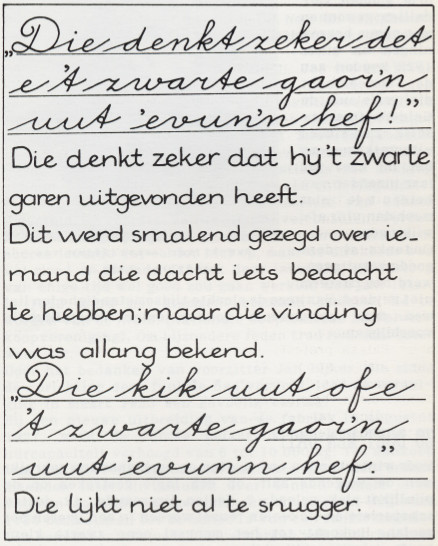 „Die denkt zeker det
e 't zwarte gaor'n
uut 'evun'n hef!”
Die denkt zeker dat hij 't zwarte
garen uitgevonden heeft.
Dit werd smalend gezegd over ie-
mand die dacht iets bedacht
te hebben; maar die vinding
was allang bekend.
„Die kik uut of e
't zwarte gaor'n
uut 'evun'n hef.”
Die lijkt niet al te snugger.